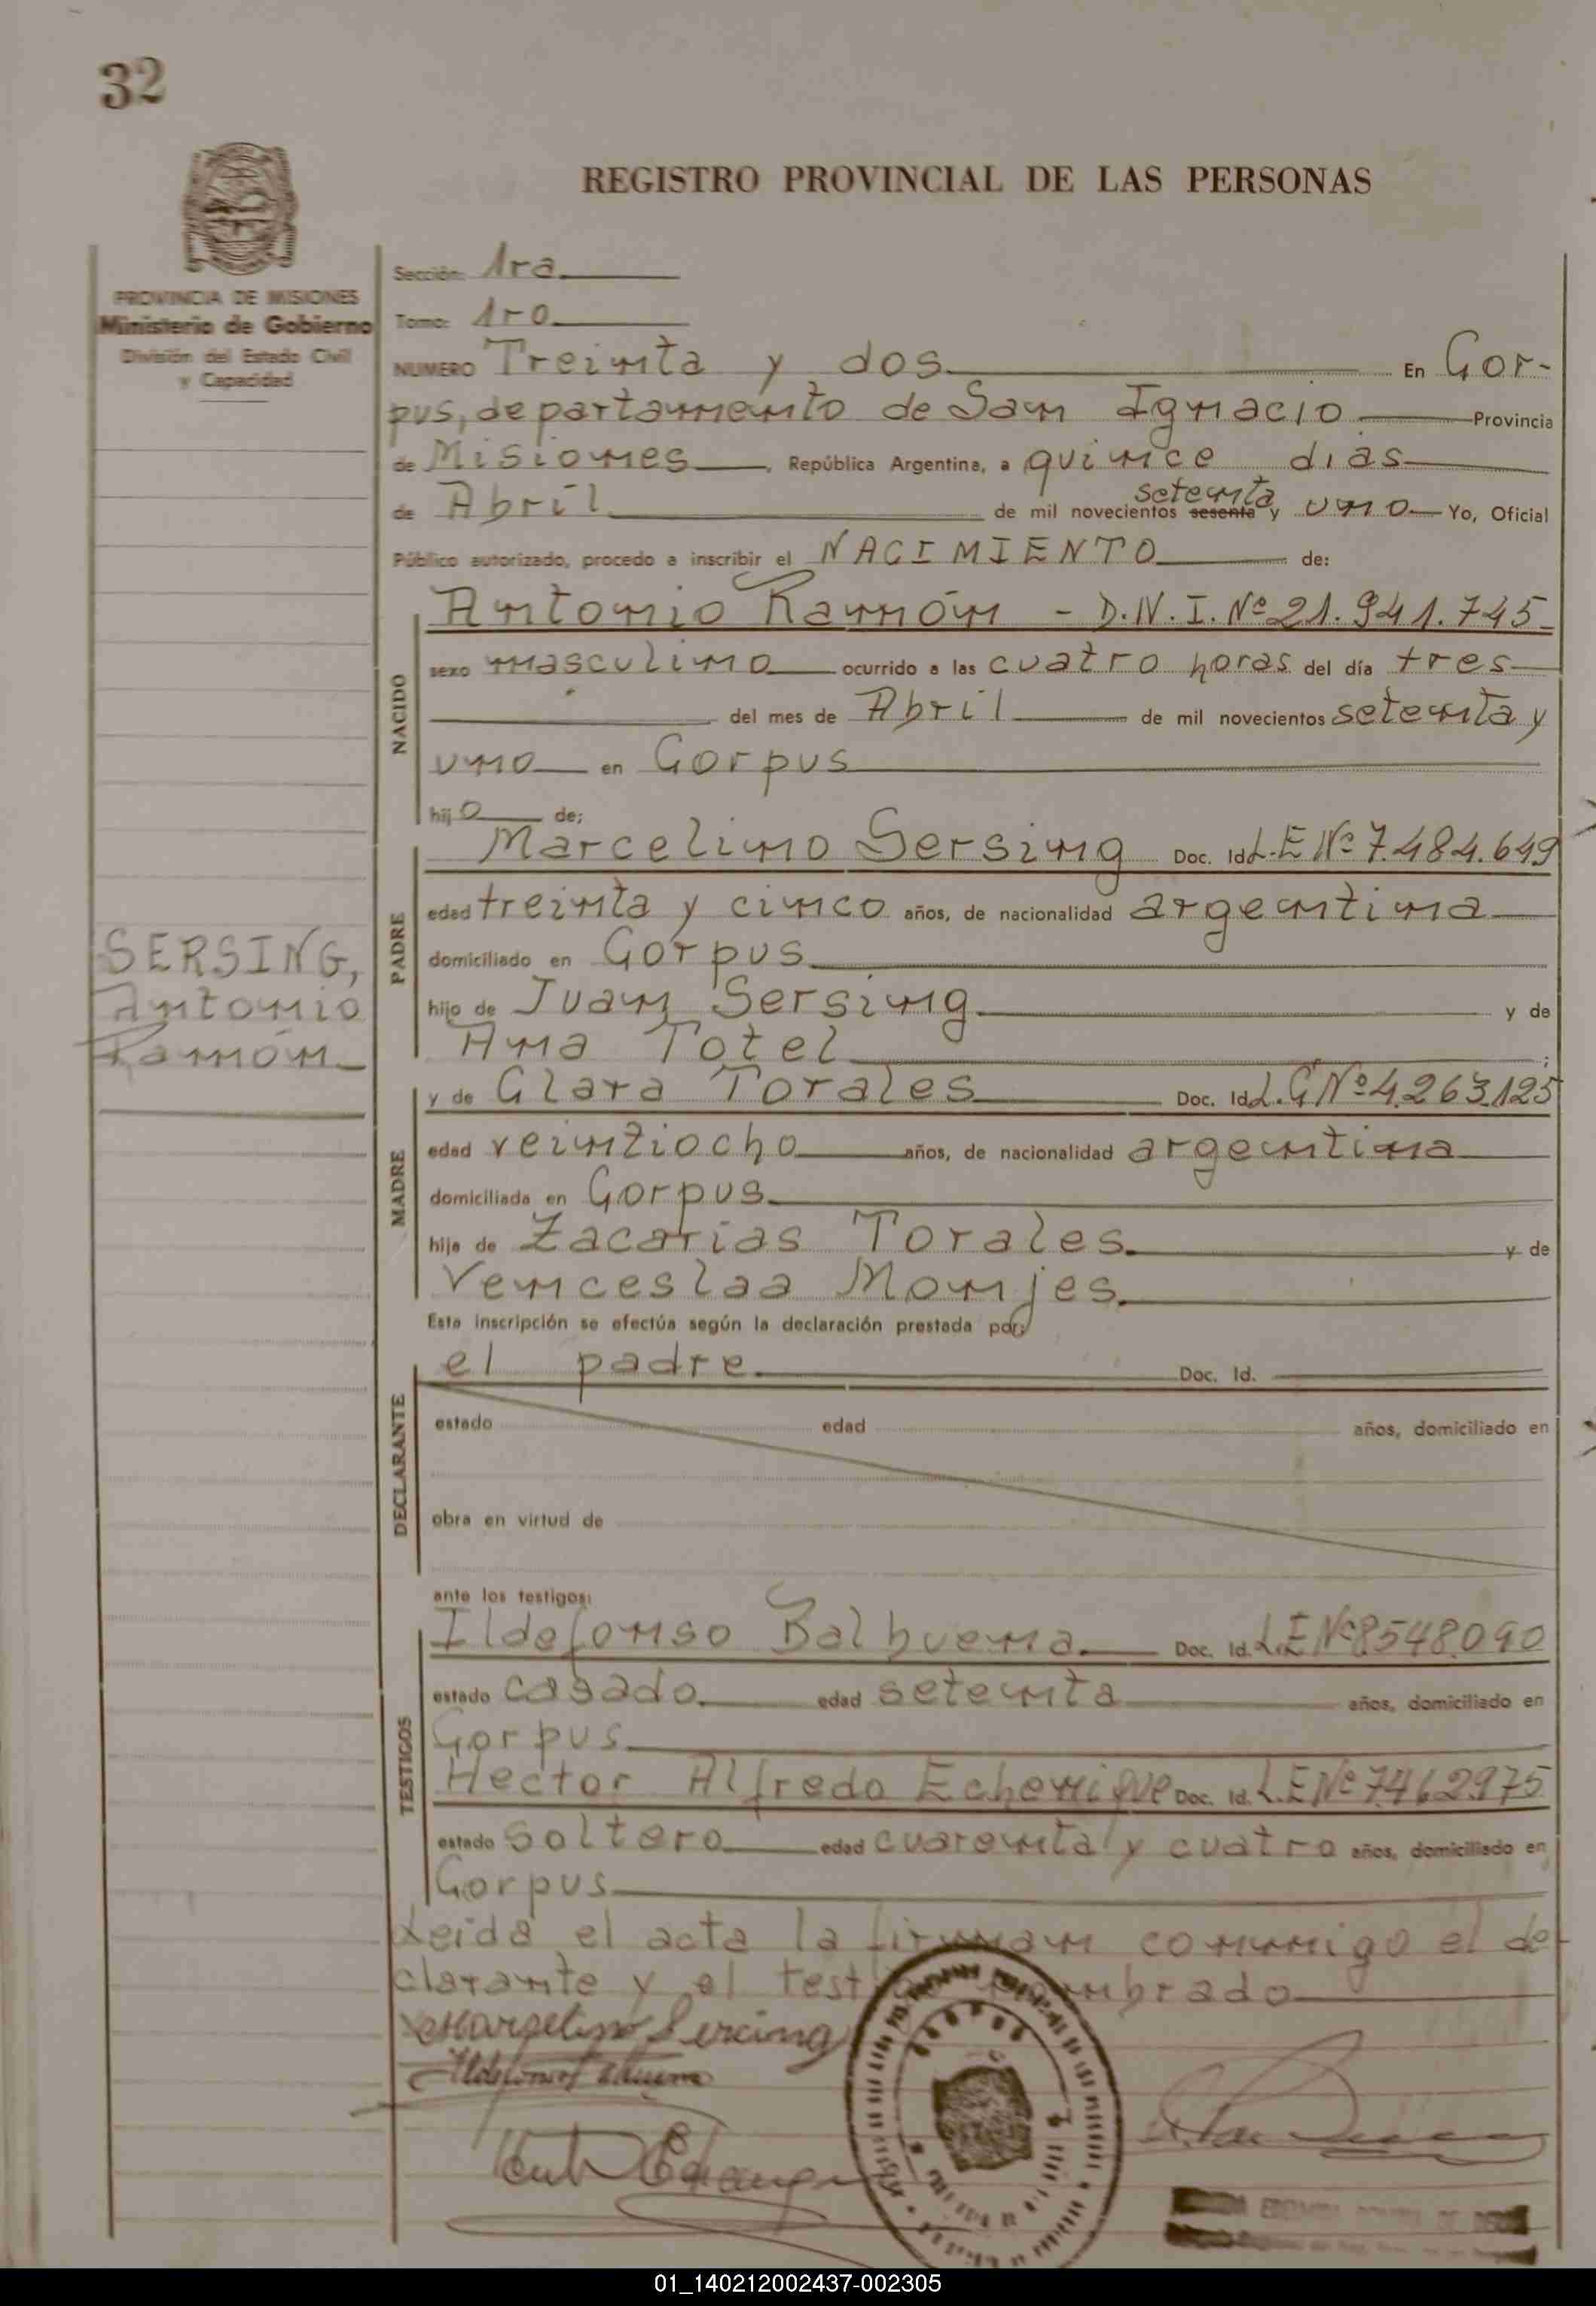 32
REGISTRO PROVINCIAL DE LAS PERSONAS
PROVINCIA DE MISIONES
Ministerio de Gobierno
División del Estado Civil
y Capacidad
Sección: 1ra.
Tomo: 1ro
NUMERO Treinta y dos En Cor-
pus, departamento de San Ignacio Provincia
de Misiones, República Argentina, a quince dias
de Abril de mil novecientos sesenta setenta y uno Yo, Oficial
Público autorizado, procedo a inscribir el NACIMIENTO de:
NACIDO
Antonio Ramón - D.N.I. Nº 21.941.745
sexo masculino ocurrido a las cuatro horas del día tres
del mes de Abril de mil novecientos setenta y
uno en Corpus
hijo de:
PADRE
Marcelino Sersing Doc. Id. L.E Nº 7.484.649
edad treinta y cinco años, de nacionalidad argentina
domiciliado en Corpus
hijo de Juan Sersing y de
Ana Totel;
SERSING,
Antonio
Ramón
MADRE
y de Clara Torales Doc. Id. L.C Nº 4.263.125
edad veintiocho años, de nacionalidad argentina
domiciliada en Corpus
hija de Zacarias Torales y de
Venceslaa Monjes
Esta inscripción se efectúa según la declaración prestada por:
DECLARANTE
el padre Doc. Id.
estado edad años, domiciliado en
obra en virtud de
ante los testigos:
TESTIGOS
Ildefonso Balbuena Doc. Id. L.E Nº 8548.090
estado casado edad setenta años, domiciliado en
Corpus
Hector Alfredo Echenique Doc. Id. L.E Nº 7462975
estado soltero edad cuarenta y cuatro años, domiciliado en
Corpus
Leida el acta la firman conmigo el de-
clarante y el nombrado
Marcelino Sercing
01_140212002437-002305